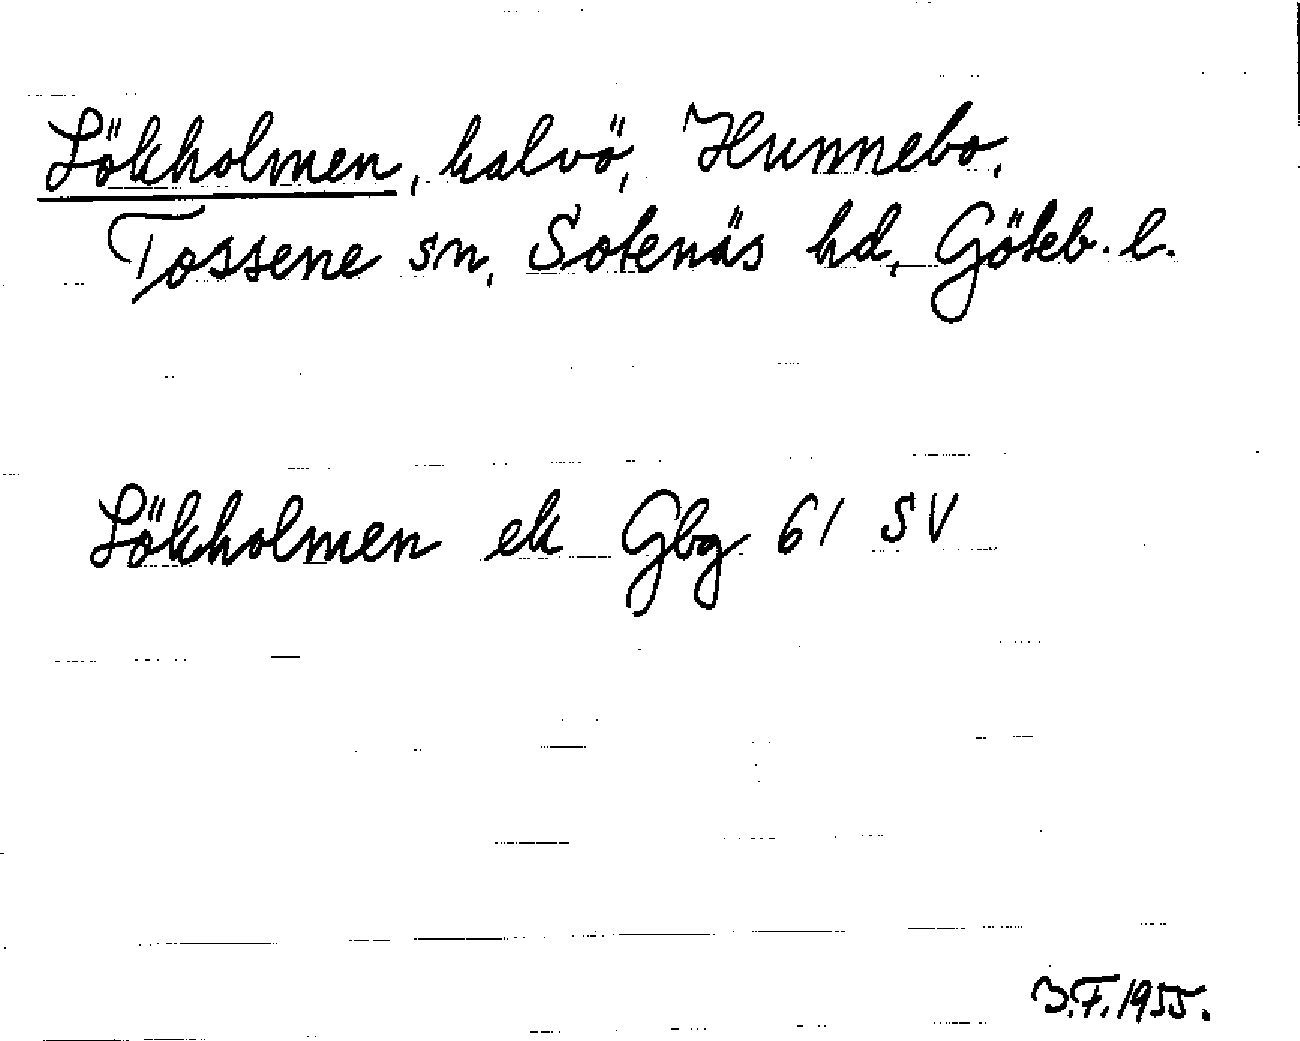 Lökholmen, halvö, Hunnebo,
Tossene sn, Sotenäs hd, Göteb. l.
Lökholmen ek Gbg 61 SV
B.F. 1955.